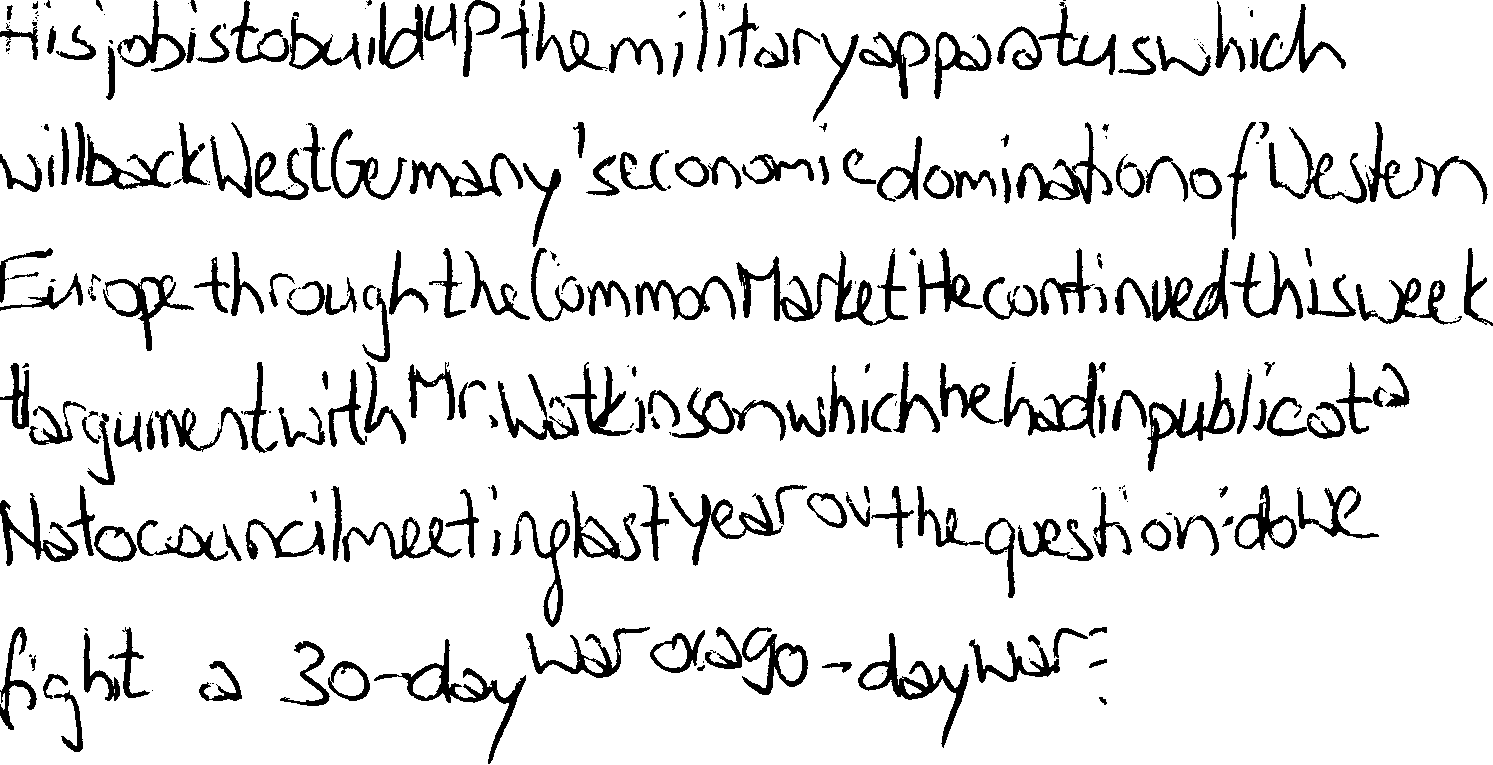 His job is to build up the military apparatus which
will back West Germany's economic domination of Western
Europe through the Common Market He continued this week
argument with Mr. Watkinson which he had in public at a
Nato council meeting last year on the question: do we
fight a 30-day war or a 90-day war?